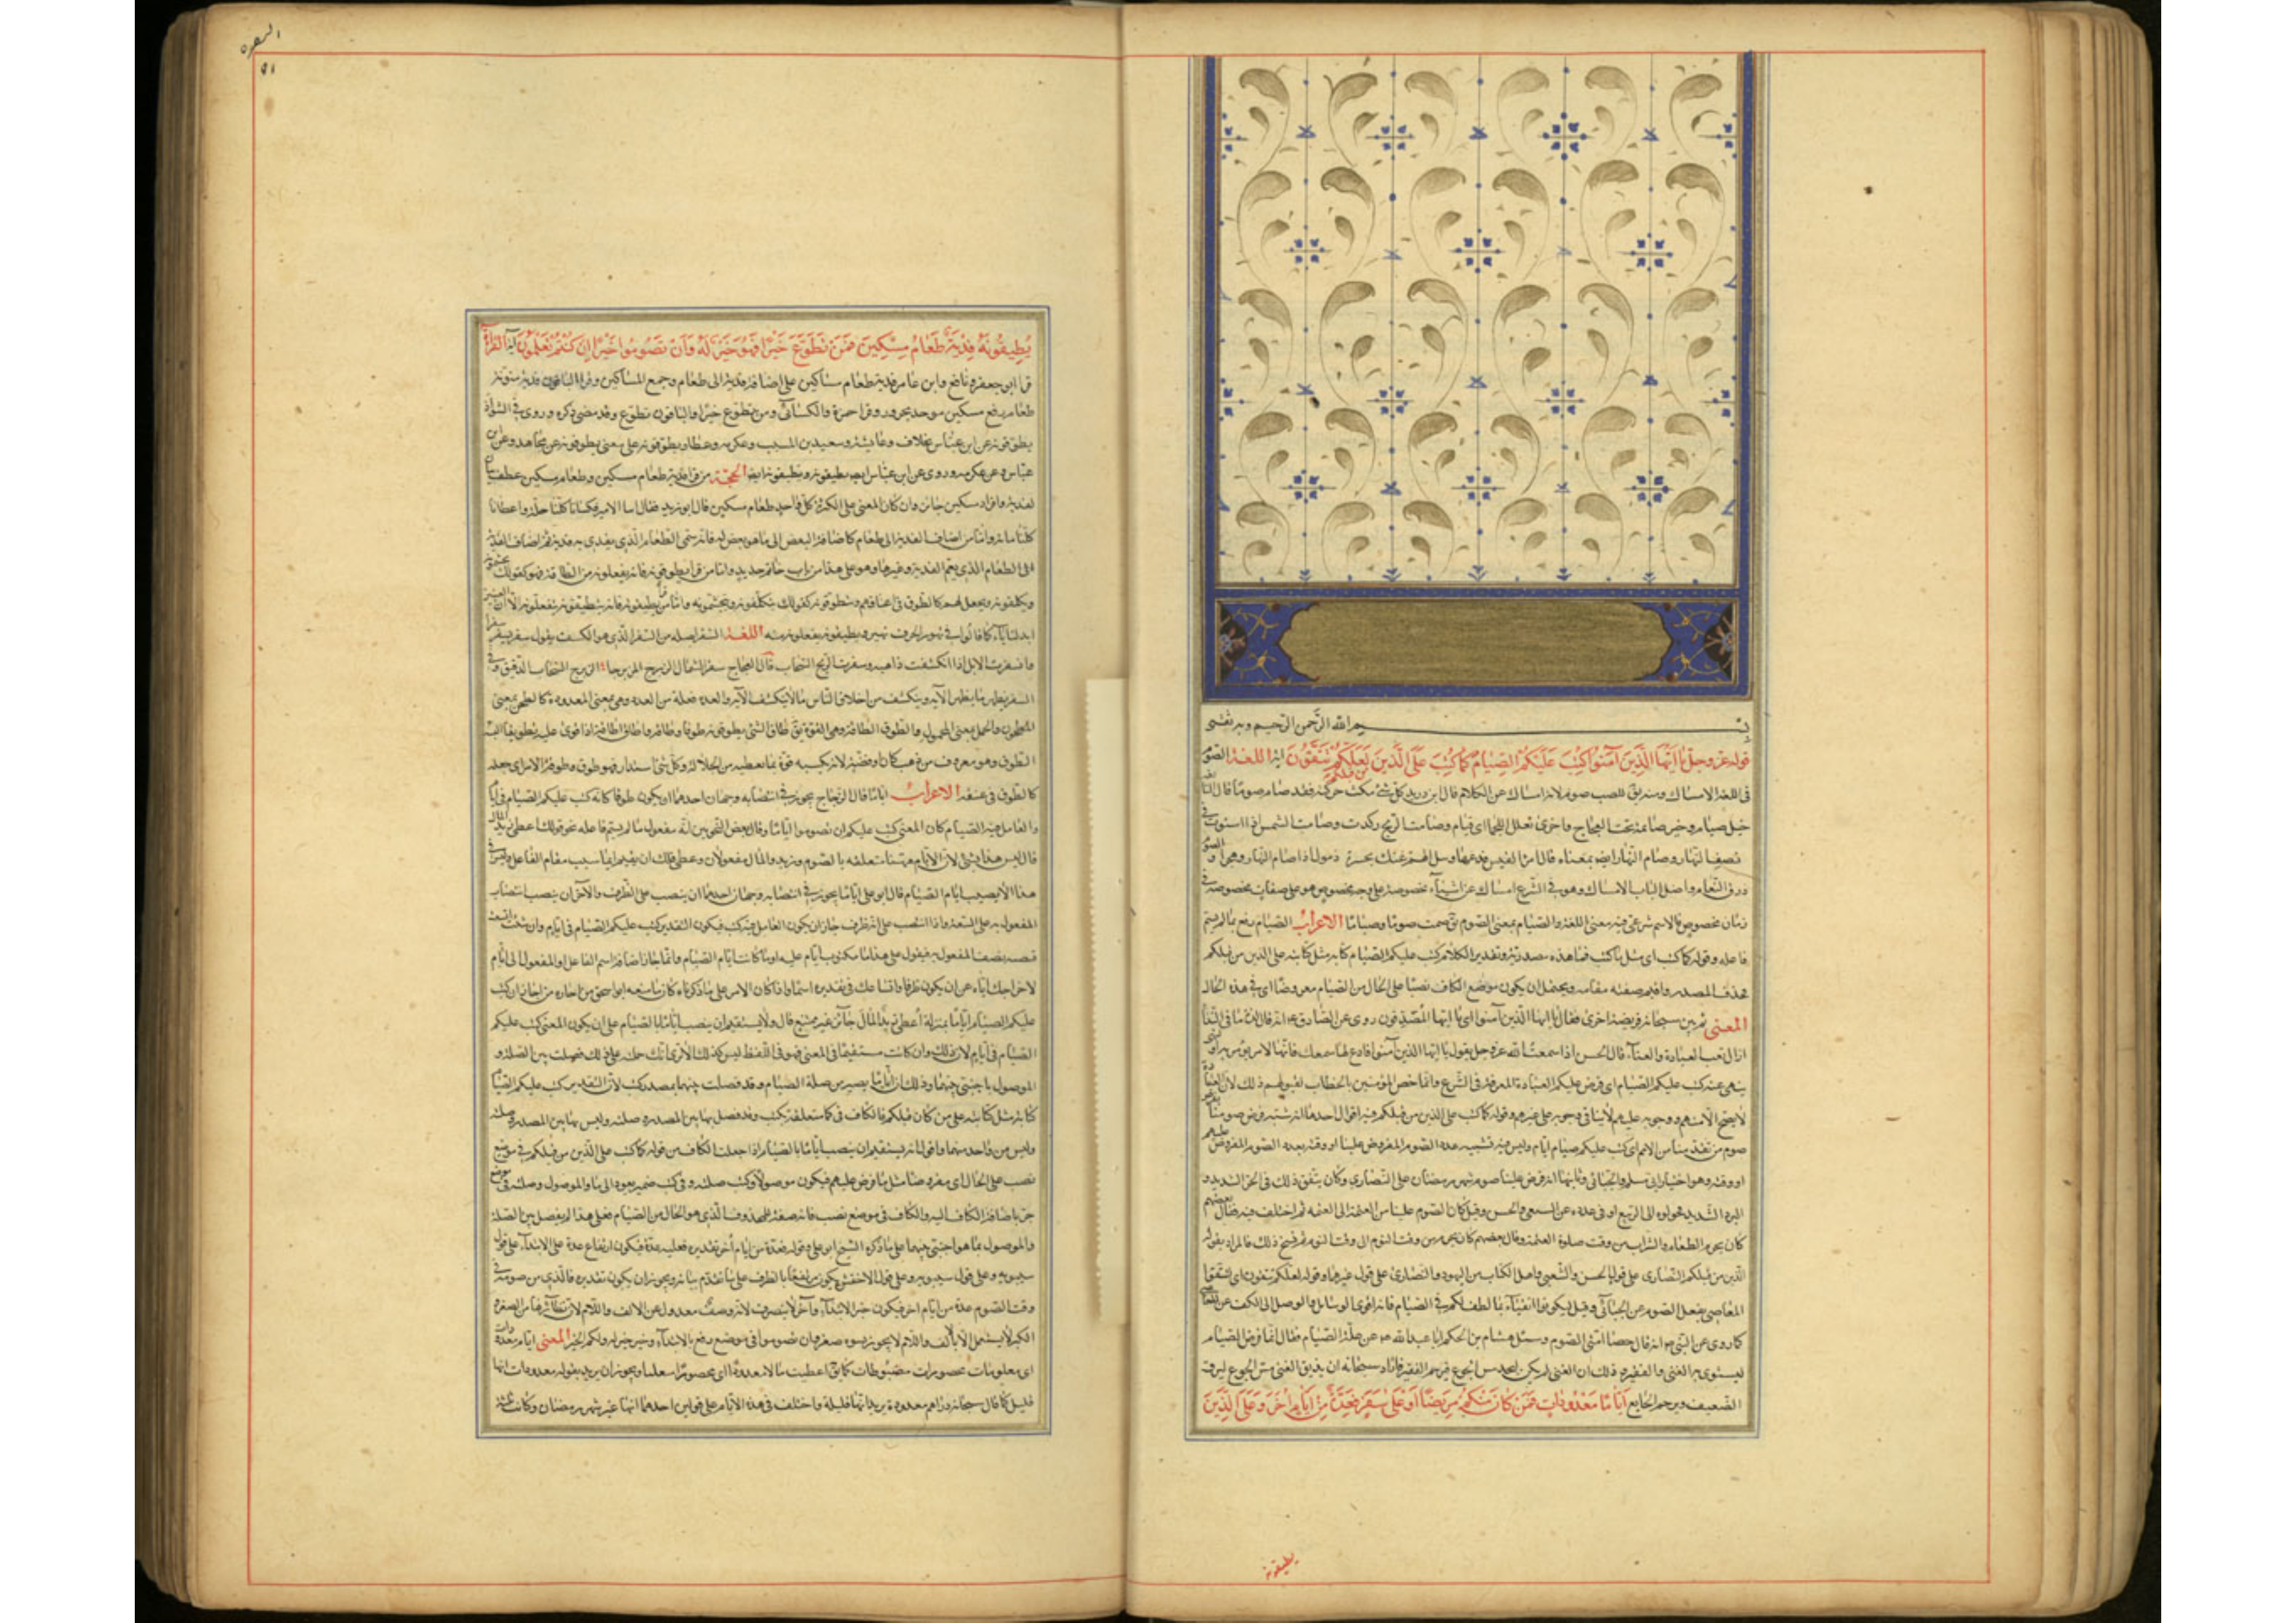 بسم الله الرحمن الرحيم وبه ثقتي
قوله عز وجل يا ايها الَّذِينَ آمَنُوا كُتِبَ عَلَيْكُمُ الصِّيَامُ كَمَا كُتِبَ عَلَى الَّذِينَ من قبلكم لَعَلَّكُمْ تَتَّقُونَ اية اللغة الصوم
في اللغة الامساك ومنه يقال للصمت صوم لانه امساك عن الكلام قال ابن دريد كل شئ سكنت حركته فقد صام صوما قال النابغة
خيل صيام وخير صائمة تحت العجاج واخرى تعلك اللجما اي قيام وصامت الريح ركدت وصامت الشمس اذا استوت في
نصف النهار وصام النهار ايضا بمعناه قال امرؤ القيس فدعها وسل الهم عنك بجسرة ذمول اذا صام النهار وهجرا والصوم
ذرق النعام واصل الباب الامساك وهو في الشرع امساك عن اشياء مخصوصة على وجه مخصوص ممن هو على صفات مخصوصة في
زمان مخصوص فالاسم شرعي فيه معنى اللغة والصيام بمعنى الصوم يق صمت صوما وصياما الاعراب الصيام رفع بما لم يسم
فاعله وقوله كما كتب اي مثل ما كتب فما هذه مصدرية وتقدير الكلام كتب عليكم الصيام كتابة مثل كتابته على الذين من قبلكم
فحذف المصدر واقيم صفته مقامه ويحتمل ان يكون موضع الكاف نصبا على الحال من الصيام مفروضا اي في هذه الحال
المعنى ثم بين سبحانه فريضة اخرى فقال يا ايها الذين آمنوا اي يا ايها المصدقون روى عن الصادق ع انه قال لذة ما في النداء
ازال تعب العبادة والعناء قال الحسن اذا سمعت الله عز وجل يقول يا ايها الذين آمنوا فارع لها سمعك فانها الامر يؤمر به او لنهي
ينهى عنه كتب عليكم الصيام اي فرض عليكم العبادة المعروفة في الشرع وانما خص المؤمنين بالخطاب لقبولهم ذلك لان العبادة
لا يصح الا منهم ووجوبه عليهم لا ينافي وجوبه على غيرهم وقوله كما كتب على الذين من قبلكم فيه اقوال احدها انه شبه فرض صومنا بفرض
صوم من تقدمنا من الامم اي كتب عليكم صيام ايام وليس فيه تشبيه عدد الصوم المفروض علينا او وقته بعدد الصوم المفروض عليهم
او وقته وهو اختيار ابي مسلم والجبائي وثانيها انه فرض علينا صوم شهر رمضان على النصارى وكان يتفق ذلك في الحر الشديد و
البرد الشديد فحولوه الى الربيع او في عدده عن الشعبي والحسن وقيل كان الصوم علينا من العتمة الى العتمة ثم اختلف فيه فقال بعضهم
كان يحرم الطعام والشراب من وقت صلوة العتمة وقال بعضهم كان يحرم من وقت النوم الى وقت النوم ثم نسخ ذلك فالمراد بقوله
الذين من قبلكم النصارى على قول الحسن والشعبي واهل الكتاب من اليهود والنصارى على قول غيرهما وقوله لعلكم تتقون اي لتتقوا
المعاصي بفعل الصوم عن الجبائي وقيل ليكونوا اتقياء بما لطف لكم في الصيام فانه اقوى الوسائل والوصل الى الكف عن المعاصي
كما روى عن النبي ص انه قال خصاء امتي الصوم وسئل هشام بن الحكم ابا عبد الله ع عن علة الصيام فقال انما فرض الصيام
ليستوى به الغني والفقير وذلك ان الغني لم يكن ليجد مس الجوع فيرحم الفقير فاراد سبحانه ان يذيق الغني مس الجوع ليرق
الضعيف ويرحم الجايع أَيَّامًا مَعْدُودَاتٍ فَمَنْ كَانَ مِنْكُمْ مَرِيضًا أَوْ عَلَى سَفَرٍ فَعِدَّةٌ مِنْ أَيَّامٍ أُخَرَ وَعَلَى الَّذِينَ
يطيقونه
البقره
٥١
يُطِيقُونَهُ فِدْيَةٌ طَعَامُ مِسْكِينٍ فَمَنْ تَطَوَّعَ خَيْرًا فَهُوَ خَيْرٌ لَهُ وَأَنْ تَصُومُوا خَيْرٌ إِنْ كُنْتُمْ تَعْلَمُونَ اية القراءة
قرا ابو جعفر ونافع وابن عامر فدية طعام مساكين على اضافة فدية الى طعام وجمع المساكين وقرا الباقون فدية منونة
طعام رفع مسكين موحد مجرور وقرا حمزة والكسائي ومن يطوع خيرا والباقون تطوع وقد مضى ذكره وروى في الشواذ
يطوقونه عن ابن عباس بخلاف وعايشة وسعيد بن المسيب وعكرمه وعطاء ويطوقونه على معنى يتطوقونه عن مجاهد وعن ابن
عباس وعن عكرمه وروى عن ابن عباس ايضا يطيقونه ويطيقونه ايضا الحجة من قرا فدية طعام مسكين وطعام مسكين عطف بيان
لفدية وافراد مسكين جايز وان كان المعنى على الكثرة لكل واحد طعام مسكين قال ابو زيد يقال اتينا الامير فكسانا كلنا حلة واعطانا
كلنا مائة واما من اضاف الفدية الى طعام كاضافة البعض الى ما هو بعض له فانه سمى الطعام الذي يفدى به فدية ثم اضاف الفدية
الى الطعام الذي يعم الفدية وغيرها وهو على هذا من باب خاتم حديد واما من قرا يطوقونه فانه يفعلونه من الطاقة فهو كقولك يجشمونه
ويكلفونه ويجعل لهم كالطوق في اعناقهم ويتطوقونه كقولك يتكلفونه ويتجشمونه واما من قرا يطيقونه فانه يتطيقونه يتفعلونه الا ان العين
ابدلت ياء كما قالوا في تهور الجرف تهير ويطيقونه يفعلونه منه اللغة السفر اصله من السفر الذي هو الكشف يقول سفر يسفر سفرا
وانسفرت الابل اذا انكشفت ذاهبة وسفرت الريح السحاب قال العجاج سفر الشمال الزبرج المزبرجا الزبرج السحاب الرقيق وفي
السفر يظهر ما لا يظهر الا به وينكشف من اخلاق الناس ما لا ينكشف الا به والعدة فعلة من العدد وهي بمعنى المعدودة كالطحن بمعنى
المطحون والحمل بمعنى المحمول والطوق الطاقة وهي القوة يق طاق الشئ يطوقه طوقا وطاقة واطاق اطاقة اذا قوى عليه وطوقه تطويقا البسه
الطوق وهو معروف من ذهب كان او فضة لانه يكسبه قوة بما يعطيه من الجلالة وكل شئ استدار فهو طوق وطوقه الامر اي جعله
كالطوق في عنقه الاعراب اياما قال الزجاج يجوز في انتصابه وجهان احدهما ان يكون ظرفا كانه كتب عليكم الصيام في ايام
والعامل فيه الصيام كان المعنى كتب عليكم ان تصوموا اياما وقال بعض النحويين انه مفعول ما لم يسم فاعله نحو قولك اعطى زيد المال
قال وليس هذا بشئ لان الايام هيهنا متعلقة بالصوم وزيد والمال مفعولان لاعطى فلك ان تقيم ايهما شئت مقام الفاعل وليس في
هذا الا نصب ايام الصيام قال ابو علي اياما يجوز في انتصابه وجهان احدهما ان ينصب على الظرف والآخر ان ينصب انتصاب
المفعول به على السعة واذا انتصب على انه ظرف جاز ان يكون العامل فيه كتب فيكون التقدير كتب عليكم الصيام في ايام وان شئت اتسعت
فنصبته نصب المفعول به فيقول على هذا يا مكتوب ايام عليه او يا كاتب ايام الصيام وانما جاز اضافة اسم الفاعل والمفعول الى ايام
لاخراجك اياه عن ان يكون ظرفا واتساعك في تقديره اسما واذا كان الامر على ما ذكرناه كان ما منعه ابو اسحق من اجازة من اجاز ان كتب
عليكم الصيام اياما بمنزلة أعطى زيد المال جائز غير ممتنع قال ولا يستقيم ان ينصب اياما بالصيام على ان يكون المعنى كتب عليكم
الصيام في ايام لان ذلك وان كان مستقيما في المعنى فهو في اللفظ ليس كذلك الا ترى انك حملته على ذلك فصلت بين الصلة و
الموصول باجنبي منهما وذلك ان اياما يصير من صلة الصيام وقد فصلت بينهما بمصدر كتب لان التقدير كتب عليكم الصيام
كتابة مثل كتابته على من كان قبلكم فالكاف في كما متعلقة بكتب وقد فصل بها بين المصدر وصلته وليس بها بين المصدر وصلته
وليس من واحد منهما واقول انه يستقيم ان ينصب اياما بالصيام اذا جعلت الكاف من قوله كما كتب على الذين من قبلكم في موضع
نصب على الحال اي مفروضا مثل ما فرض عليهم فيكون ما موصولا وكتب صلته وفي كتب ضمير يعود الى ما والموصول وصلته في موضع
جر باضافة الكاف اليه والكاف في موضع نصب فانه صفة للمحذوف الذي هو الحال من الصيام فعلى هذا لم يفصل بين الصلة
والموصول بما هو اجنبي منهما على ما ذكره الشيخ ابو علي وقوله فعدة من ايام أخر تقديره فعليه عدة فيكون ارتفاع عدة على الابتداء على قول
سيبويه وعلى قول سيبويه وعلى قول الاخفش يكون مرتفعا بالظرف على ما تقدم بيانه ويجوز ان يكون تقديره فالذي من صومه في
وقت الصوم عدة من ايام اخر فيكون خبر الابتداء وآخر لا ينصرف لانه وصف معدول عن الالف واللام لان نظائرها من الصغر و
الكبر لا يستعمل الا بالف واللام لا يجوز نسوة صغر وان تصوموا في موضع رفع بالابتداء وخير خبره ولكم الخبر المعنى اياما معدودات
اى معلومات محصورات مضبوطات كما يق اعطيت مالا معدودا اى محصورا معلما ويجوز ان يريد بقوله معدودات انها
قليل كما قال سبحانه دراهم معدودة يريد انها قليلة واختلف في هذه الايام على قولين احدهما انها غير شهر رمضان وكانت ثلثة